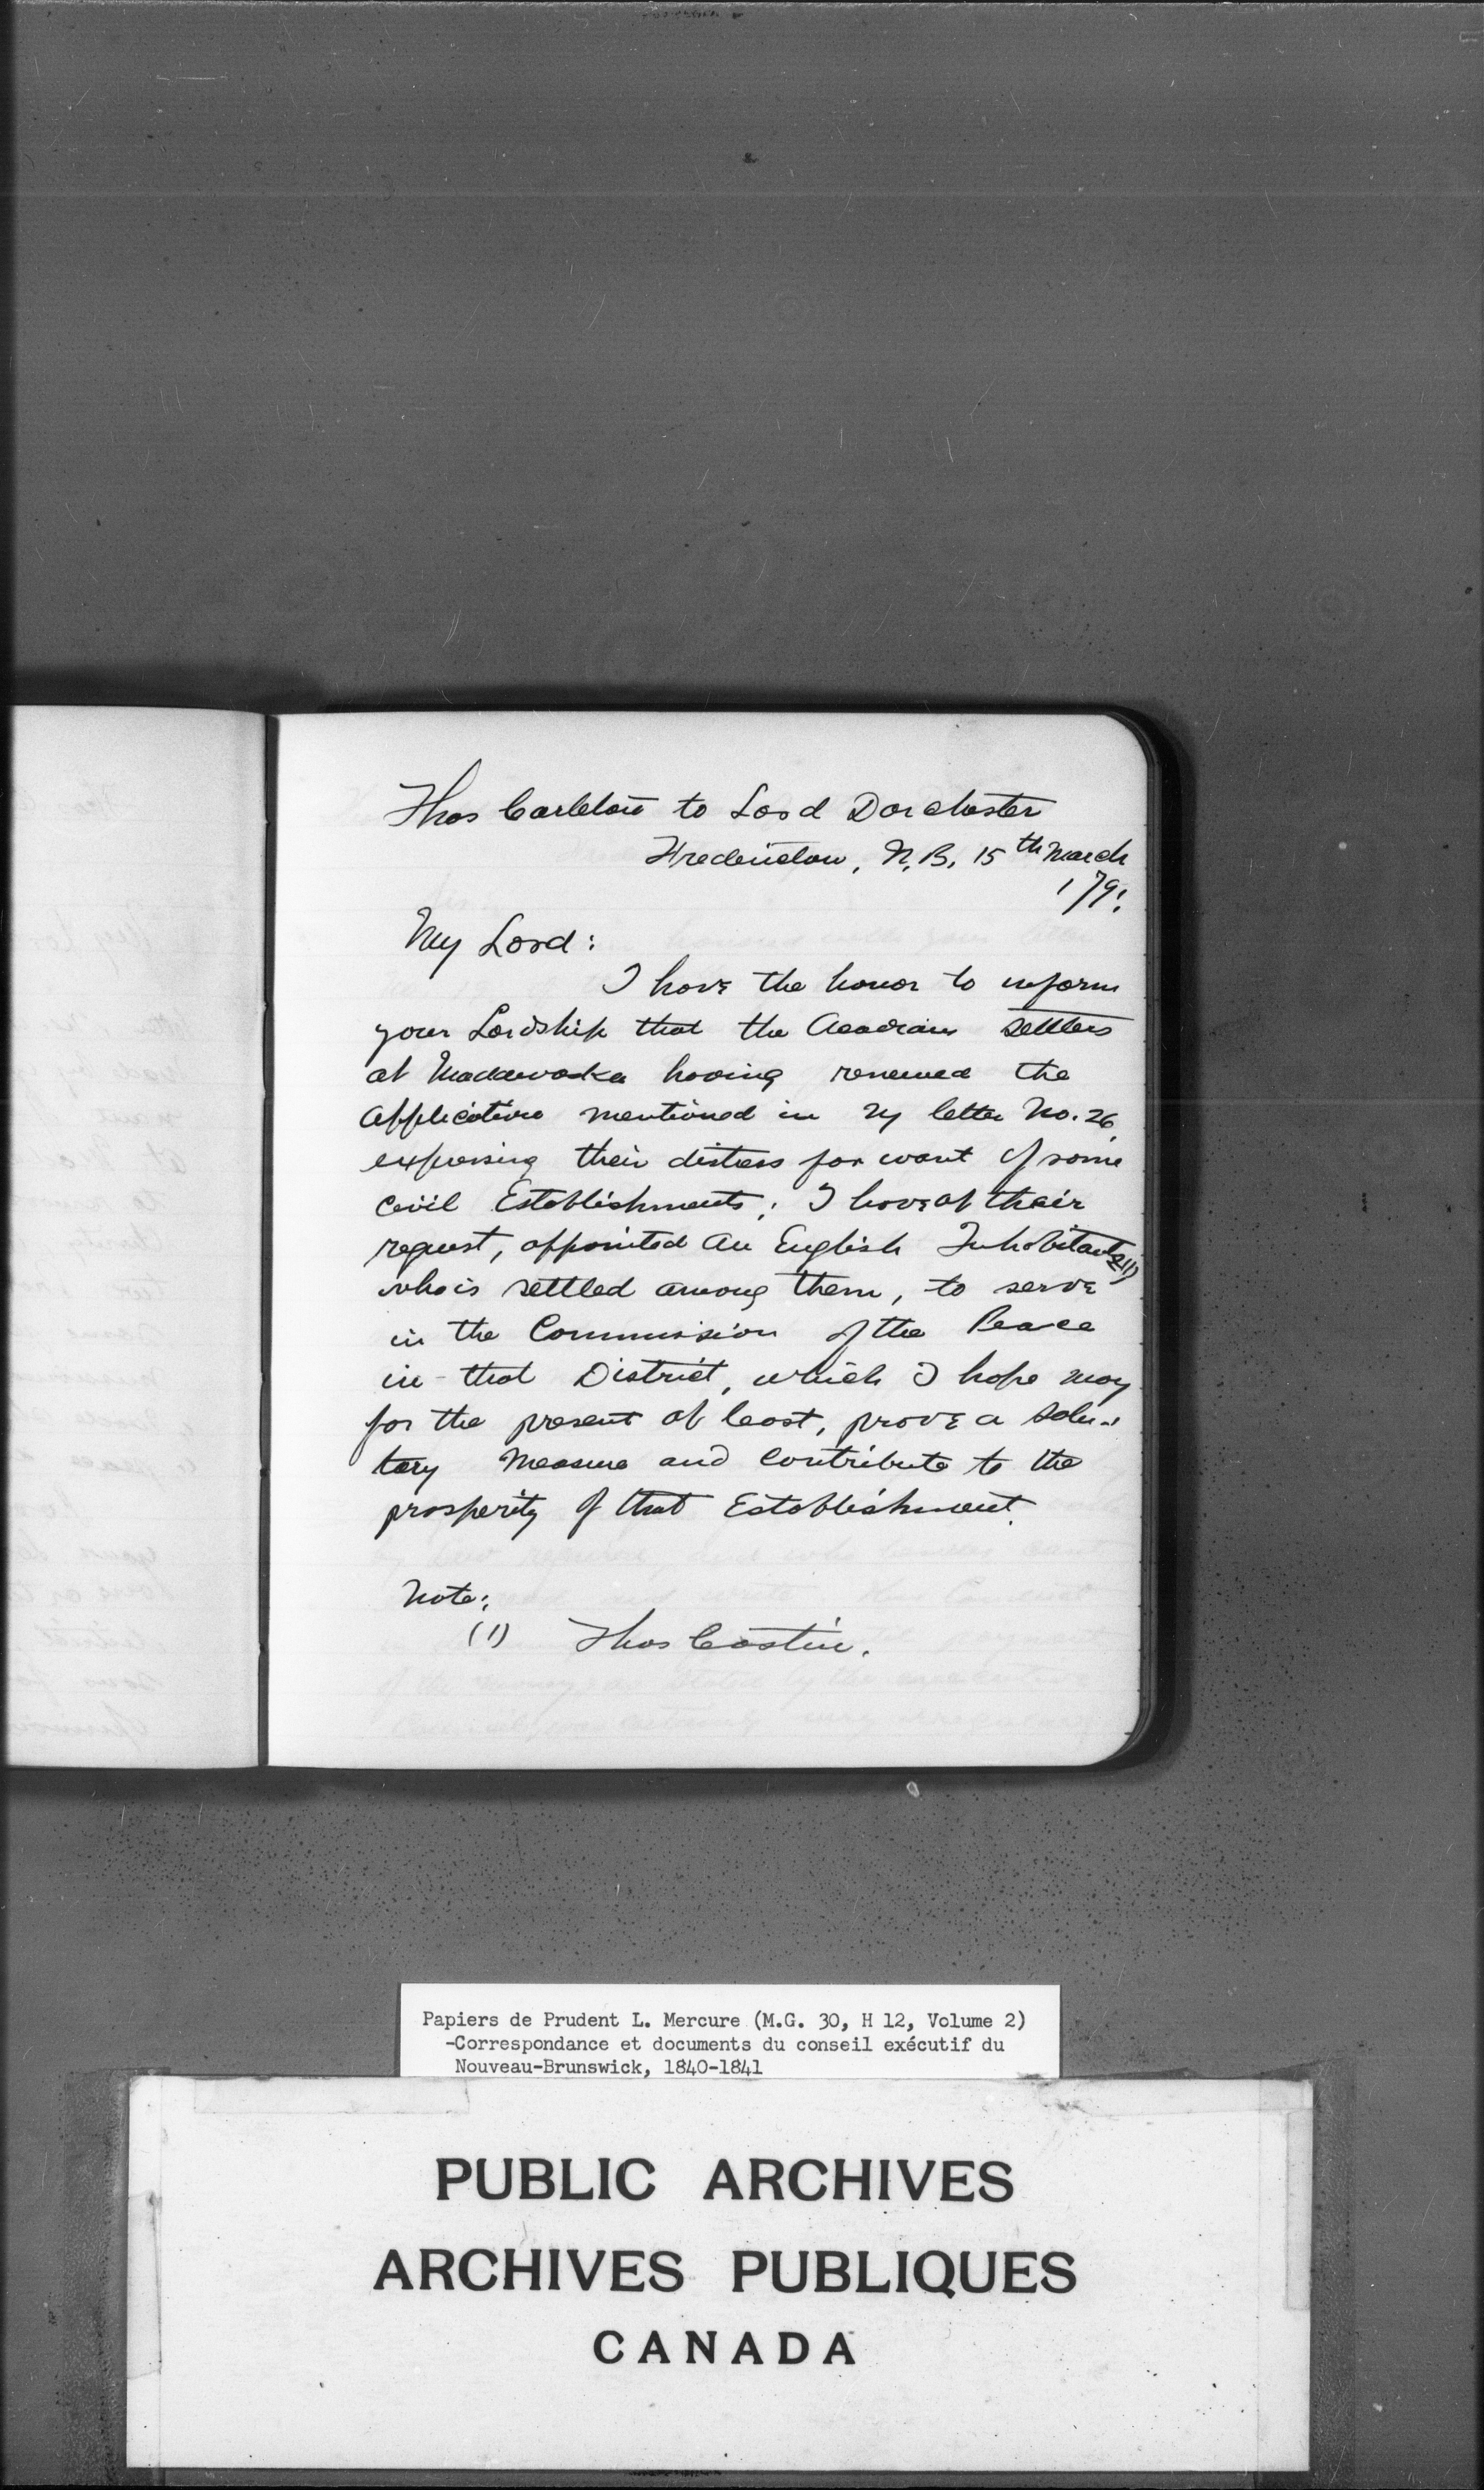 Thos Carleton to Lord Dorchester
Fredericton, N.B. 15th March
179!
My Lord:
I have the honor to inform
your Lordship that the Acadian settlers
at Madawaska having renewed the
Application mentioned in my letter No. 26,
expressing their distress for want of some
Civil Establishments; I have at their
request, appointed an English Inhabitant (1)
who is settled among them, to serve
in the Commission of the Peace
in that District, which I hope may
for the present at least, prove a salu-
tary measure and contribute to the
prosperity of that Establishment.
Note:
(1) Thos Costin.
Papiers de Prudent L. Mercure (M.G. 30, H 12, Volume 2)
-Correspondance et documents du conseil exécutif du
Nouveau-Brunswick, 1840-1841
PUBLIC ARCHIVES
ARCHIVES PUBLIQUES
CANADA